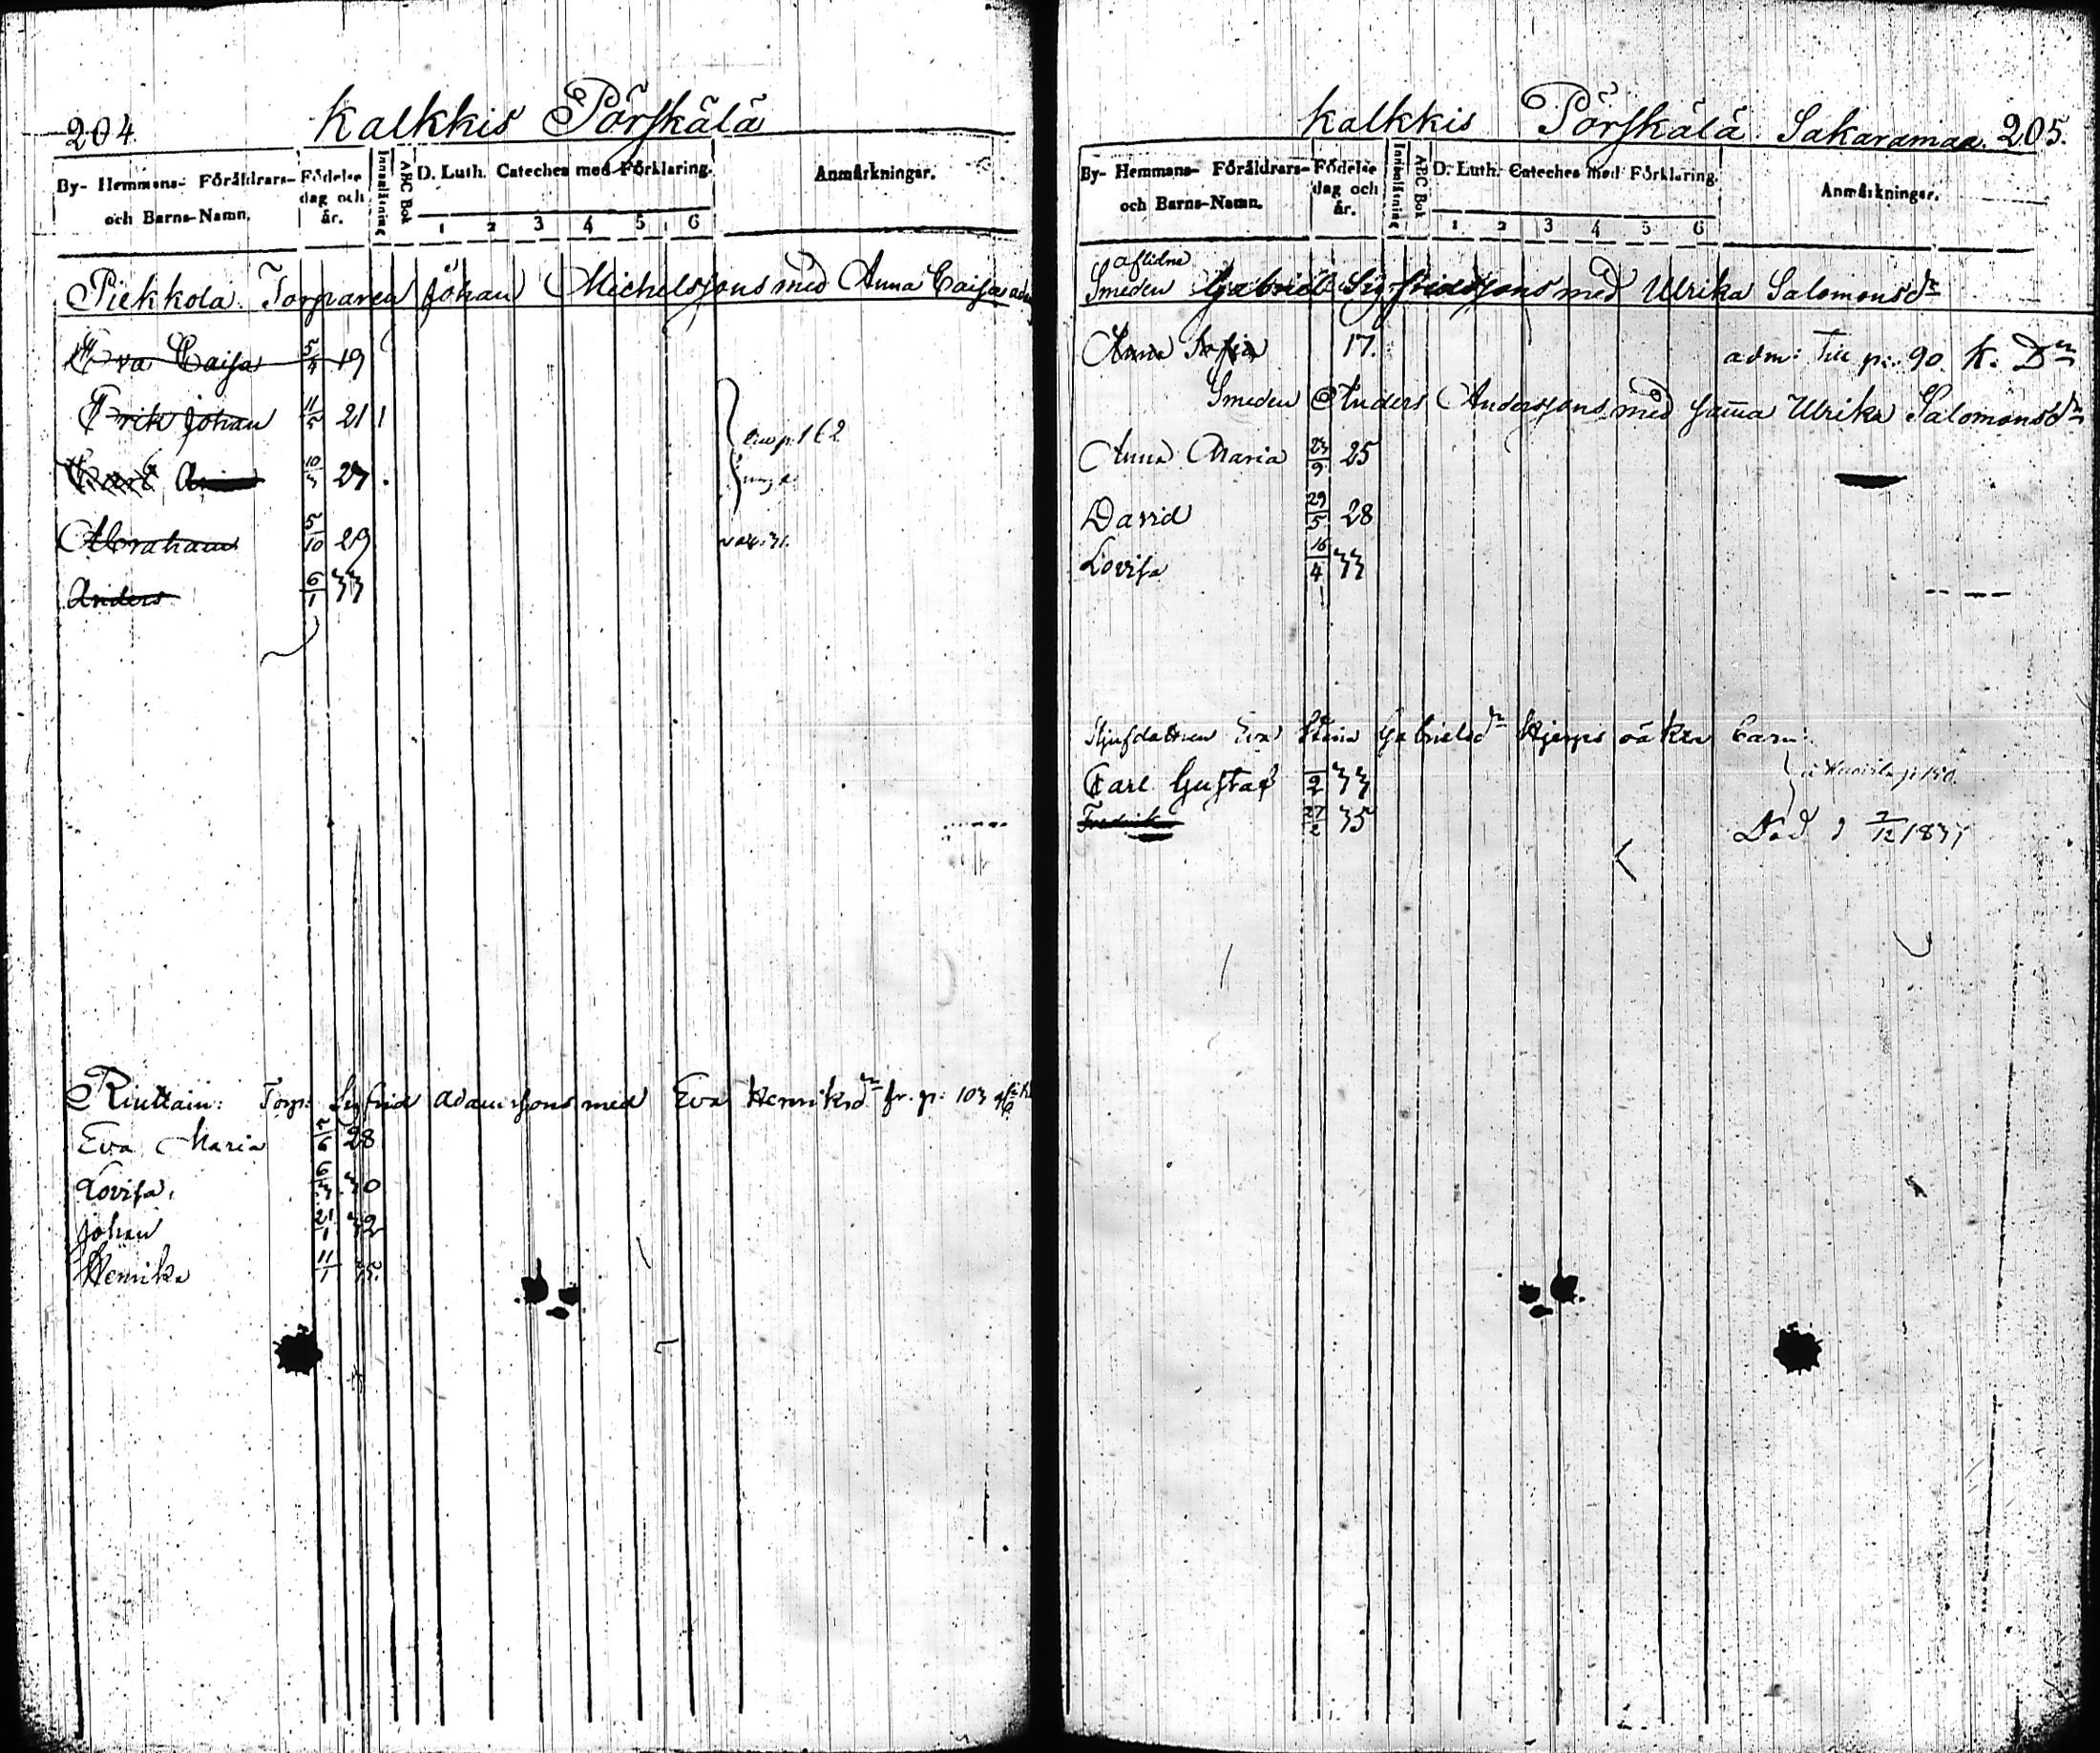 204. Kalkkis Pörskälä
By- Hemmans- Föräldrars- och Barns-Namn. Födelse dag och år. Innanläsning ABC Bok D. Luth. Cateches med Förklaring. 1 2 3 4 5 6 Anmärkningar.
Piekkola. Torparen Johan Michelssons med Anna Caisa
Eva Caisa 5/4 19
Erik Johan 11/5 21 1
10/3 27
Abraham 5/10 29
Anders 6/1 33
p. 162
Riuttain: Torp: Sigfrid Adamssons med Eva Henriksdr fr. p. 103
Eva Maria 28
Lovisa 6/3 30
Johan 21/1 32
Henrika 11/1 35.
Kalkkis Pörskälä Sakaramaa. 205.
By- Hemmans- Föräldrars- och Barns-Namn. Födelse dag och år. Innanläsning ABC Bok D. Luth. Cateches med Förklaring. 1 2 3 4 5 6 Anmärkningar.
aflidne
Smeden Gabriel Sigfridssons med Ulrika Salomonsdr
Anna Sofia 17. adm: Till p: 90. K. Dn
Smeden Anders Anderssons med samma Ulrika Salomonsdr
Anna Maria 23/9 25
David 29/5 28
Lovisa 16/4 33
Styfdottren Eva Stina Gabrielsdr Hjerps oäkta barn:
Carl Gustaf 33 p 150.
Fredrik 27/2 35 Död d 7/12 1837